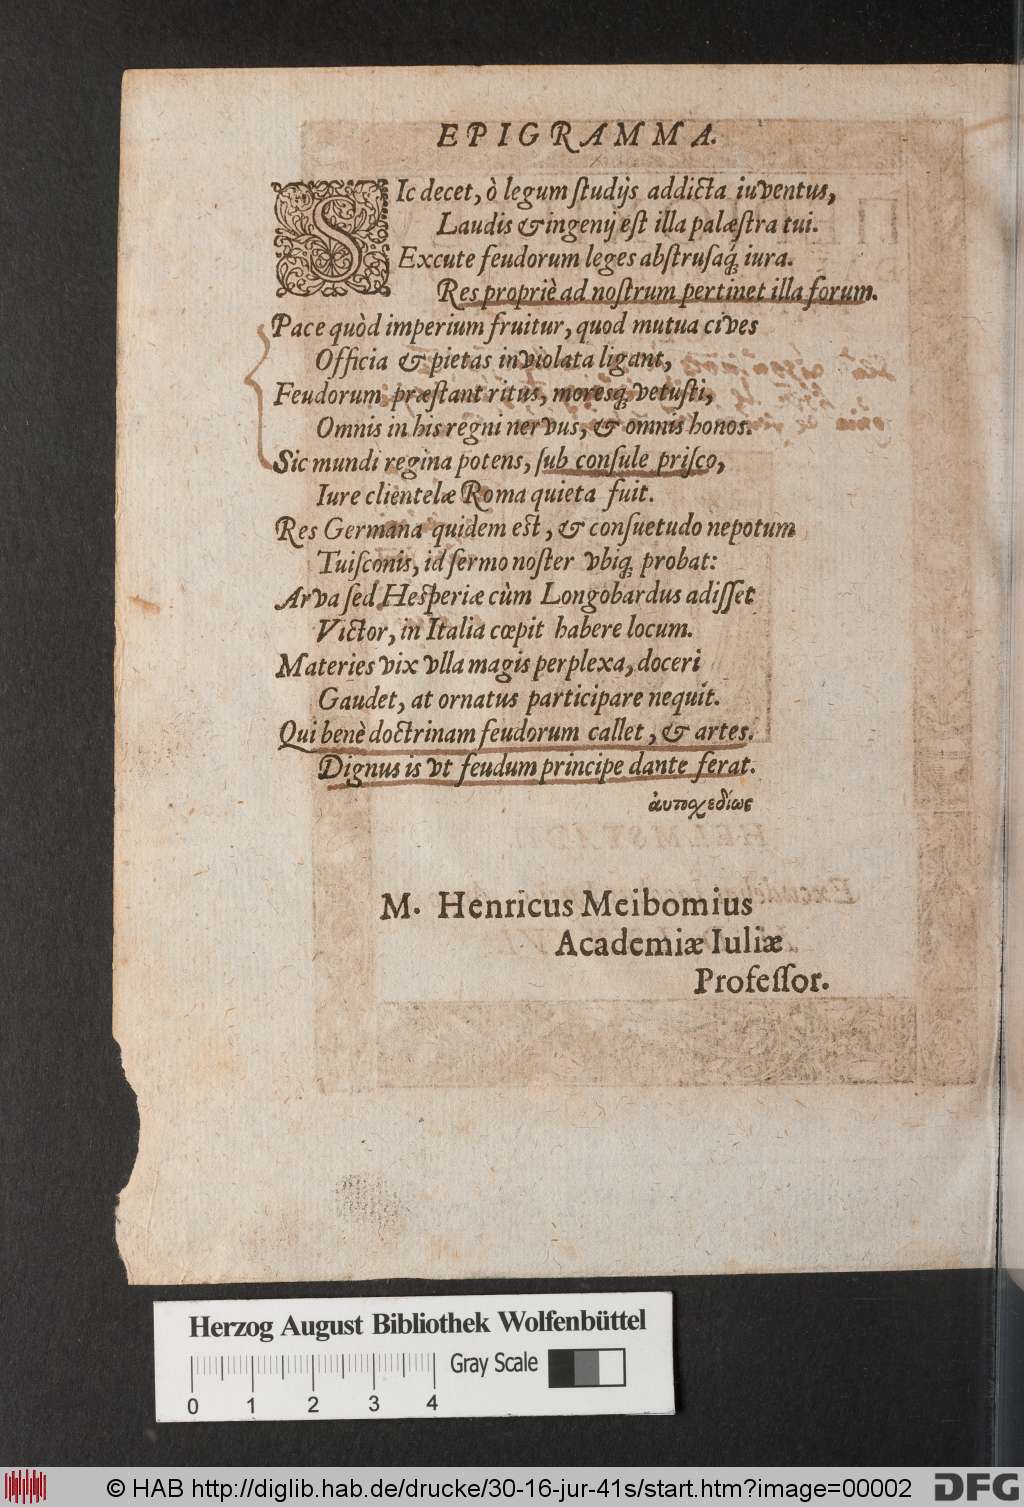 EPIGRAMMA.
SIc decet, ò legum ſtudijs addicta iuventus,
Laudis & ingenij eſt illa palæſtra tui.
Excute feudorum leges abſtruſaq́; iura.
Res propriè ad noſtrum pertinet illa forum.
Pace quòd imperium fruitur, quod mutua cives
Officia & pietas inviolata ligant,
Feudorum præſtant ritus, moresq́; vetuſti,
Omnis in his regni nervus, & omnis honos.
Sic mundi regina potens, ſub conſule priſco,
Iure clientelæ Roma quieta fuit.
Res Germana quidem eſt, & conſuetudo nepotum
Tuiſconis, id ſermo noſter vbiq́; probat:
Arva ſed Heſperiæ cùm Longobardus adiſſet
Victor, in Italia cœpit habere locum.
Materies vix vlla magis perplexa, doceri
Gaudet, at ornatus participare nequit.
Qui benè doctrinam feudorum callet, & artes.
Dignus is vt feudum principe dante ferat.
M. Henricus Meibomius
Academiæ Iuliæ
Profeſſor.
Herzog August Bibliothek Wolfenbüttel
Gray Scale
0 1 2 3 4
© HAB http://diglib.hab.de/drucke/30-16-jur-41s/start.htm?image=00002
DFG